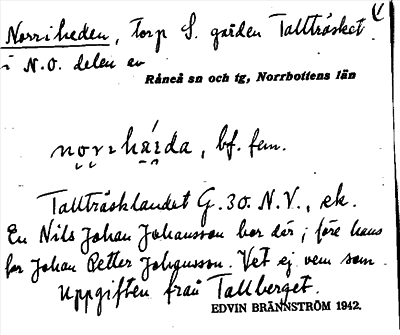 Norriheden, torp S. gården Tallträsket
i N.O. delen av
Råneå sn och tg, Norrbottens län
norrhä́ida, bf. fem.
Tallträsklandet G. 30. N.V., ek.
En Nils Johan Johansson bor där; före hans
far Johan Petter Johansson. Vet ej vem som
Uppgiften från Tallberget.
EDVIN BRÄNNSTRÖM 1942.